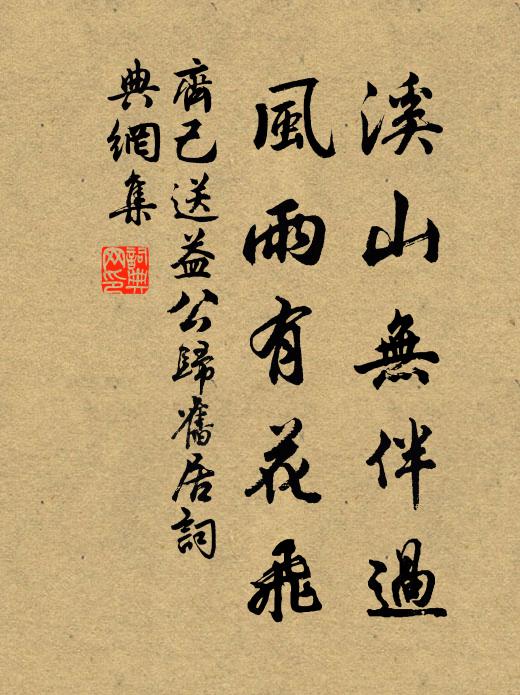 溪山無伴過
風雨有花飛
齊己送益公歸舊居詞
典網集
詞典
网印